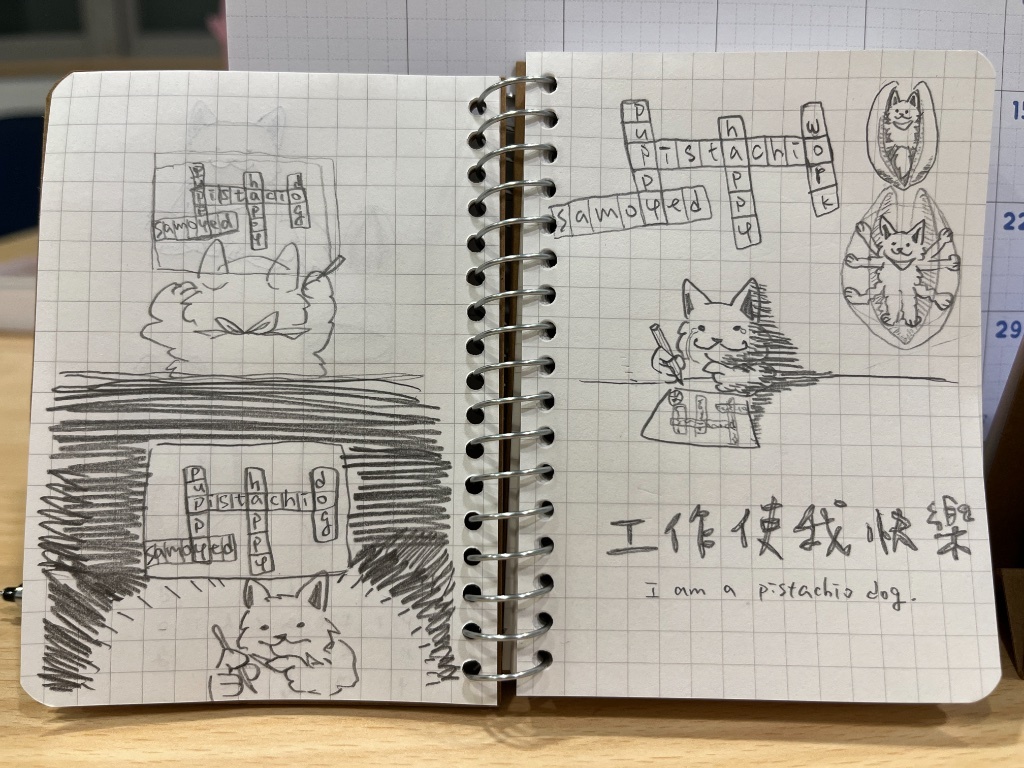 puppy
pistachio
happy
dog
samoyed
puppy
pistachio
happy
dog
samoyed
puppy
pistachio
happy
work
samoyed
工作使我快樂
i am a pistachio dog.
15
22
29